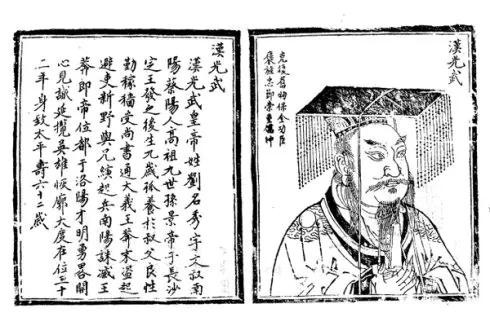 漢光武
克復舊物保全功臣
褒旌忠節崇重儒術
漢光武
漢光武皇帝姓劉名秀字文叔南
陽蔡陽人高祖九世孫景帝子長沙
定王發之後生九歲孤養於叔父良性
勤稼穡受尚書通大義王莽末盜起
避吏新野與兄縯起兵南陽誅滅王
莽即帝位都于洛陽才明勇畧開
心見誠延攬英雄恢廓大度在位三十
二年身致太平壽六十二歲